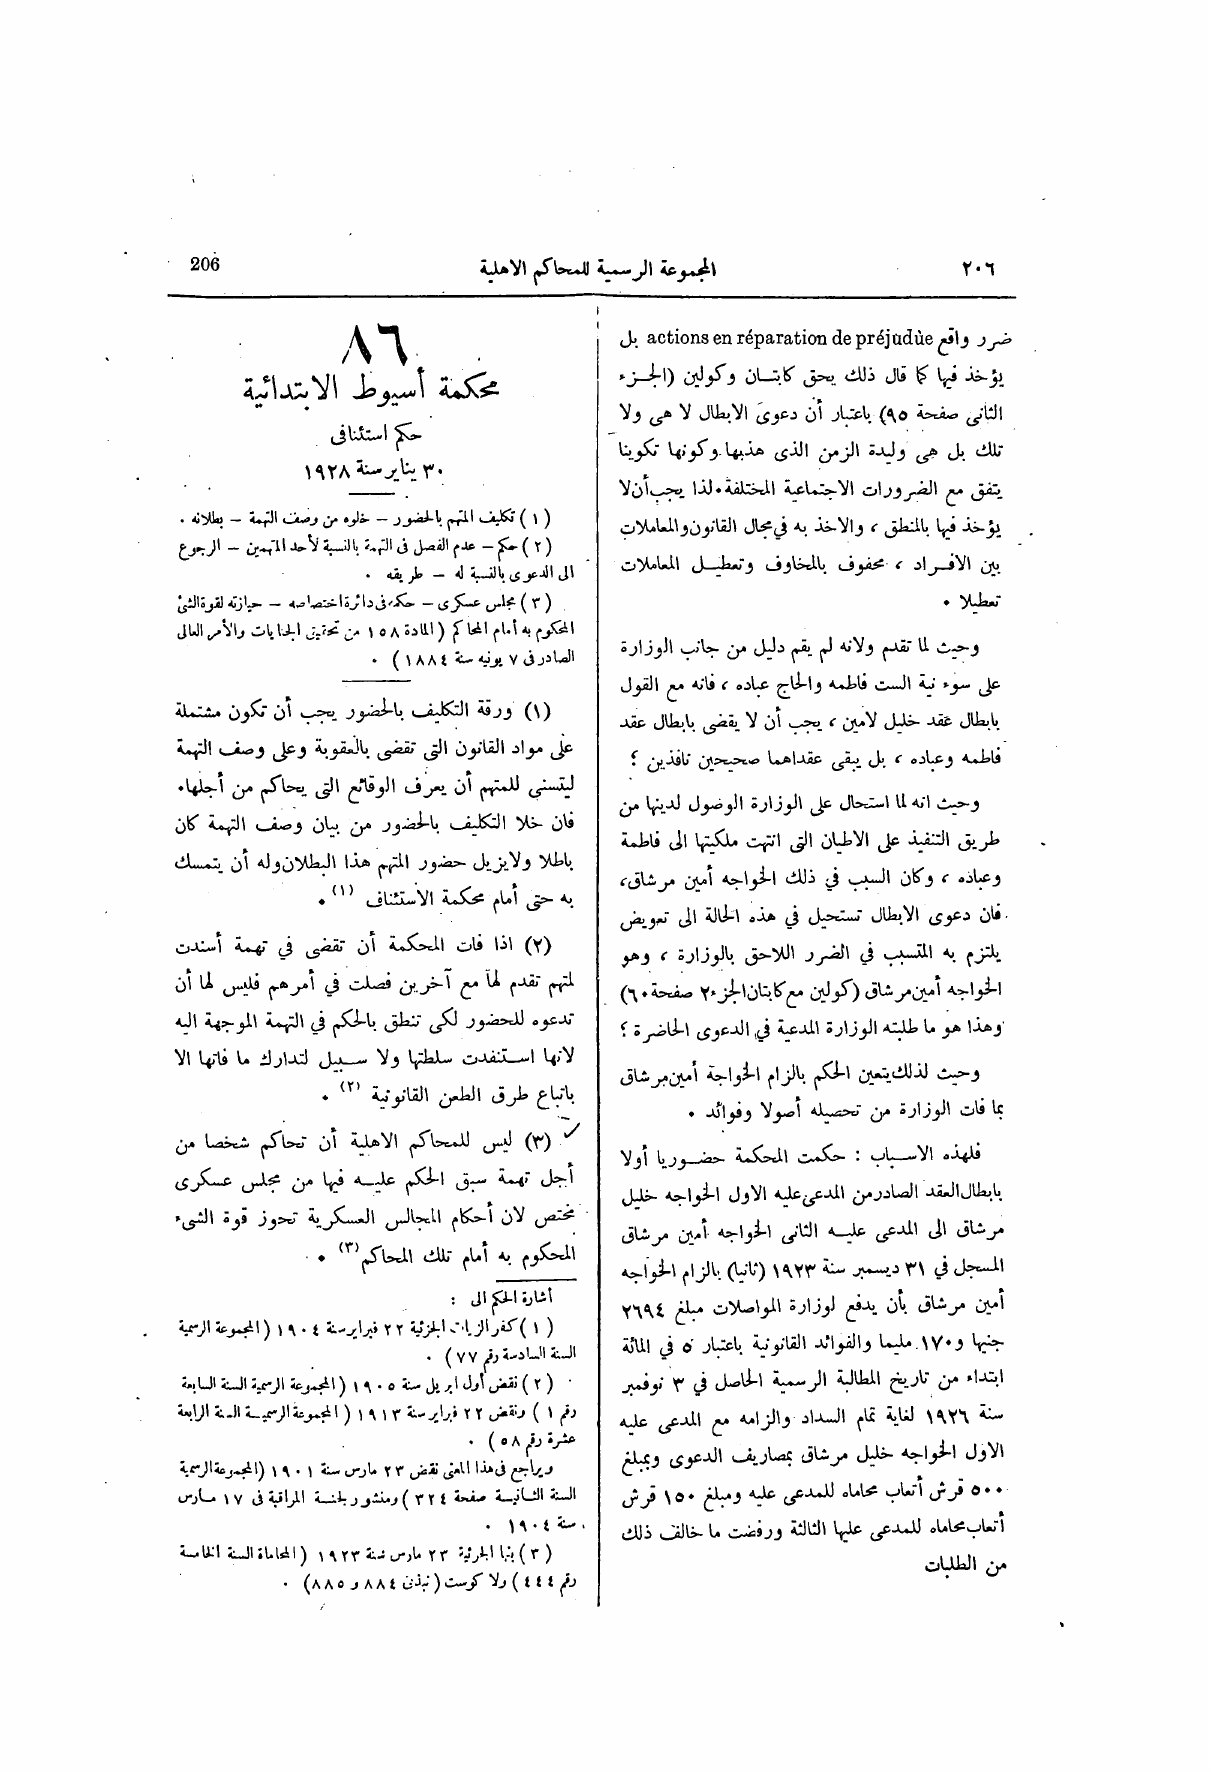 ٢٠٦ المجموعة الرسمية للمحاكم الاهلية 206
ضرر واقع actions en réparation de préjudùe بل
يؤخذ فيها كما قال ذلك يحق كابتان وكولين (الجزء
الثانى صفحة ٩٥) باعتبار أن دعوى الابطال لا هى ولا
تلك بل هى وليدة الزمن الذى هذبها وكونها تكوينا
يتفق مع الضرورات الاجتماعية المختلفة. لذا يجب أن لا
يؤخذ فيها بالمنطق ، والاخذ به فى مجال القانون والمعاملات
بين الأفراد ، محفوف بالمخاوف وتعطيل المعاملات
تعطيلا .
وحيث لما تقدم ولانه لم يقم دليل من جانب الوزارة
على سوء نية الست فاطمه والحاج عباده ، فانه مع القول
بابطال عقد خليل لامين ، يجب أن لا يقضى بابطال عقد
فاطمه وعباده ، بل يبقى عقداهما صحيحين نافذين ؛
وحيث انه لما استحال على الوزارة الوصول لدينها من
طريق التنفيذ على الاطيان التى انتهت ملكيتها الى فاطمة
وعباده ، وكان السبب في ذلك الخواجه أمين مرشاق،
فان دعوى الابطال تستحيل في هذه الحالة الى تعويض
يلتزم به المتسبب في الضرر اللاحق بالوزارة ، وهو
الخواجه أمين مرشاق (كولين مع كابتان الجزء ٢ صفحة ٦٠)
وهذا هو ما طلبته الوزارة المدعية في الدعوى الحاضرة ؛
وحيث لذلك يتعين الحكم بالزام الخواجة أمين مرشاق
بما فات الوزارة من تحصيله أصولا وفوائد .
فلهذه الاسباب : حكمت المحكمة حضوريا أولا
بابطال العقد الصادر من المدعى عليه الاول الخواجه خليل
مرشاق الى المدعى عليه الثانى الخواجه أمين مرشاق
المسجل في ٣١ ديسمبر سنة ١٩٢٣ (ثانيا) بالزام الخواجه
أمين مرشاق بأن يدفع لوزارة المواصلات مبلغ ٢٦٩٤
جنيها و١٧٠ مليما والفوائد القانونية باعتبار ٥ في المائة
ابتداء من تاريخ المطالبة الرسمية الحاصل في ٣ نوفمبر
سنة ١٩٢٦ لغاية تمام السداد والزامه مع المدعى عليه
الاول الخواجه خليل مرشاق بمصاريف الدعوى وبمبلغ
٥٠٠ قرش أتعاب محاماه للمدعى عليه ومبلغ ١٥٠ قرش
أتعاب محاماه للمدعى عليها الثالثة ورفضت ما خالف ذلك
من الطلبات
٨٦
محكمة أسيوط الابتدائية
حكم استئنافى
٣٠ يناير سنة ١٩٢٨
(١) تكليف المتهم بالحضور – خلوه من وصف التهمة – بطلانه .
(٢) حكم – عدم الفصل فى التهمة بالنسبة لأحد المتهمين – الرجوع
الى الدعوى بالنسبة له – طريقه .
(٣) مجلس عسكرى – حكمه فى دائرة اختصاصه – حيازته لقوة الشئ
المحكوم به أمام المحاكم (المادة ١٥٨ من تحقيق الجنايات والأمر العالى
الصادر فى ٧ يونيه سنة ١٨٨٤) .
(١) ورقة التكليف بالحضور يجب أن تكون مشتملة
على مواد القانون التى تقضى بالعقوبة وعلى وصف التهمة
ليتسنى للمتهم أن يعرف الوقائع التى يحاكم من أجلها.
فان خلا التكليف بالحضور من بيان وصف التهمة كان
باطلا ولايزيل حضور المتهم هذا البطلان وله أن يتمسك
به حتى أمام محكمة الاستئناف (١) .
(٢) اذا فات المحكمة أن تقضى في تهمة أسندت
لمتهم تقدم لها مع آخرين فصلت في أمرهم فليس لها أن
تدعوه للحضور لكى تنطق بالحكم في التهمة الموجهة اليه
لانها استنفدت سلطتها ولا سبيل لتدارك ما فاتها الا
باتباع طرق الطعن القانونية (٢) .
(٣) ليس للمحاكم الاهلية أن تحاكم شخصا من
أجل تهمة سبق الحكم عليه فيها من مجلس عسكرى
مختص لان أحكام المجالس العسكرية تحوز قوة الشىء
المحكوم به أمام تلك المحاكم (٣) .
أشارة الحكم الى :
(١) كفر الزيات الجزئية ٢٢ فبراير سنة ١٩٠٤ (المجموعة الرسمية
السنة السادسة رقم ٧٧) .
(٢) نقض أول ابريل سنة ١٩٠٥ (المجموعة الرسمية السنة السابعة
رقم ١) ونقض ٢٢ فبراير سنة ١٩١٣ (المجموعة الرسمية السنة الرابعة
عشرة رقم ٥٨) .
ويراجع فى هذا المعنى نقض ٢٣ مارس سنة ١٩٠١ (المجموعة الرسمية
السنة الثانية صفحة ٣٢٤) ومنشور لجنة المراقبة فى ١٧ مارس
سنة ١٩٠٤ .
(٣) بنها الجزئية ٢٣ مارس سنة ١٩٢٣ (المحاماة السنة الخامسة
رقم ٤٤٤) ولا كوست (نبذتى ٨٨٤ و ٨٨٥) .